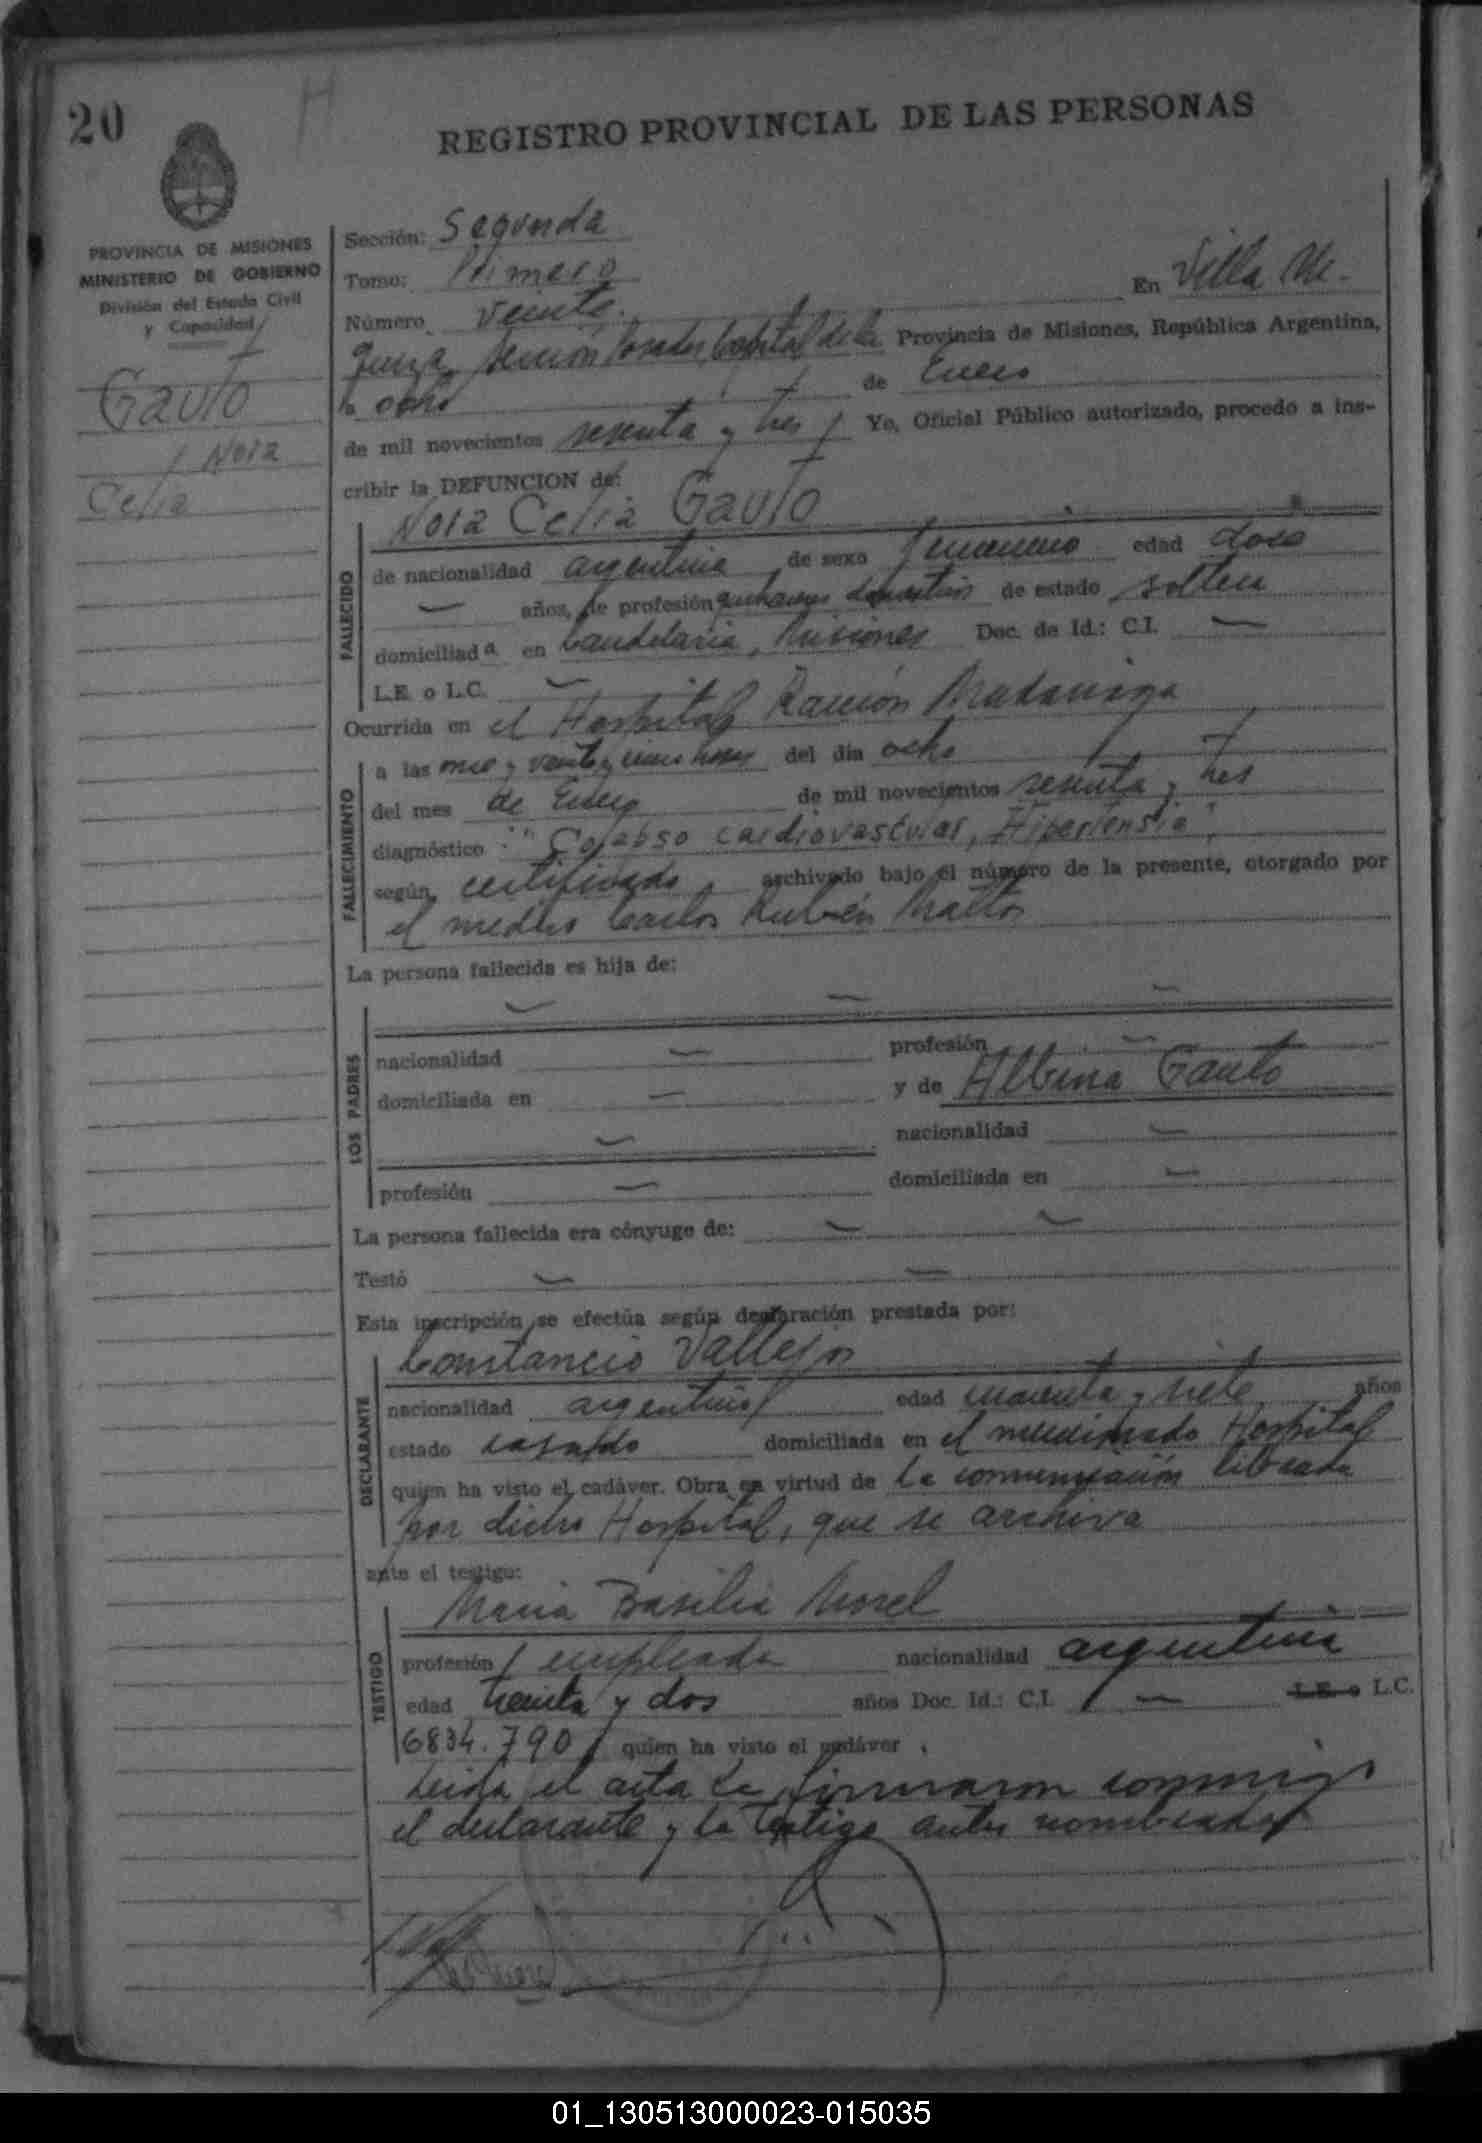 20
H
REGISTRO PROVINCIAL DE LAS PERSONAS
PROVINCIA DE MISIONES
MINISTERIO DE GOBIERNO
División del Estado Civil
y Capacidad
Gauto
Nora
Celia
Sección: Segunda
Tomo: Primero
Número veinte.
En Villa Ur-
quiza, Provincia de Misiones, República Argentina,
a ocho de Enero
de mil novecientos sesenta y tres Yo, Oficial Público autorizado, procedo a ins-
cribir la DEFUNCION de:
Nora Celia Gauto
FALLECIDO
de nacionalidad argentina de sexo femenino edad doce
— años, de profesión quehaceres domésticos de estado soltera
domiciliada en Candelaria, Misiones Doc. de Id.: C.I. —
L.E. o L.C. —
Ocurrida en el Hospital Ramón Madariaga
FALLECIMIENTO
a las once y veinte y cinco horas del día ocho
del mes de Enero de mil novecientos sesenta y tres
diagnóstico: "Colapso cardiovascular, Hipertensia",
según certificado, archivado bajo el número de la presente, otorgado por
el médico Carlos Rubén Mattos
La persona fallecida es hija de:
— — —
LOS PADRES
nacionalidad — profesión —
domiciliada en — y de Albina Gauto
— nacionalidad —
profesión — domiciliada en —
La persona fallecida era cónyuge de: — —
Testó — —
Esta inscripción se efectúa según declaración prestada por:
Constancio Vallejos
DECLARANTE
nacionalidad argentino edad cuarenta y siete años
estado casado domiciliada en el mencionado Hospital
quien ha visto el cadáver. Obra en virtud de la comunicación librada
por dicho Hospital, que se archiva
ante el testigo:
María Basilia Morel
TESTIGO
profesión empleada nacionalidad argentina
edad treinta y dos años Doc. Id.: C.I. — L.E. o L.C.
6834.790 quien ha visto el cadáver.
Leída el acta la firmaron conmigo
el declarante y la testigo antes nombrados
01_130513000023-015035